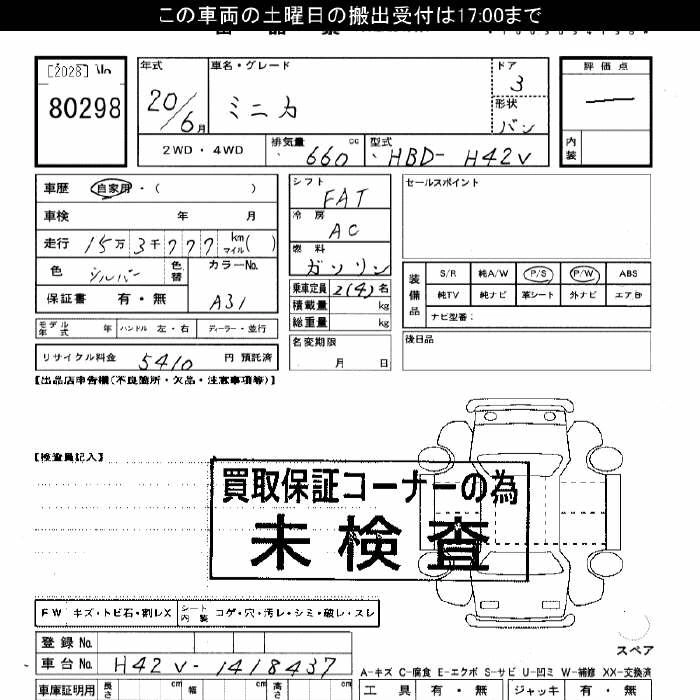 この車両の土曜日の搬出受付は17:00まで
[2028] No
80298
年式
20/6月
車名・グレード
ミニカ
ドア
3
形状
バン
評価点
内装
2WD・4WD
排気量
660 cc
型式
HBD- H42V
車歴 自家用・( )
車検 年 月
走行 15万3千777 km マイル( )
色 シルバー
色替
カラーNo.
A31
保証書 有・無
シフト
FAT
冷房
AC
燃料
ガソリン
乗車定員 2(4) 名
積載量 kg
総重量 kg
セールスポイント
装備品
S/R 純A/W P/S P/W ABS
純TV 純ナビ 革シート 外ナビ エアB
ナビ型番:
モデル年式 年 ハンドル 左・右 ディーラー・並行
リサイクル料金 5410 円 預託済
名変期限
月 日
後日品
【出品店申告欄(不良箇所・欠品・注意事項等)】
【検査員記入】
買取保証コーナーの為
未検査
FW キズ・トビ石・割レX
シート内装 コゲ・穴・汚レ・シミ・破レ・スレ
登録No.
車台No. H42V-1418437
スペア
A-キズ C-腐食 E-エクボ S-サビ U-凹ミ W-補修 XX-交換済
車庫証明用 長さ cm 幅 cm 高さ cm
工具 有・無 ジャッキ 有・無